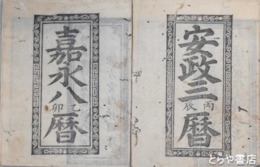 安政三丙辰暦
嘉永八乙卯暦
とらや書店